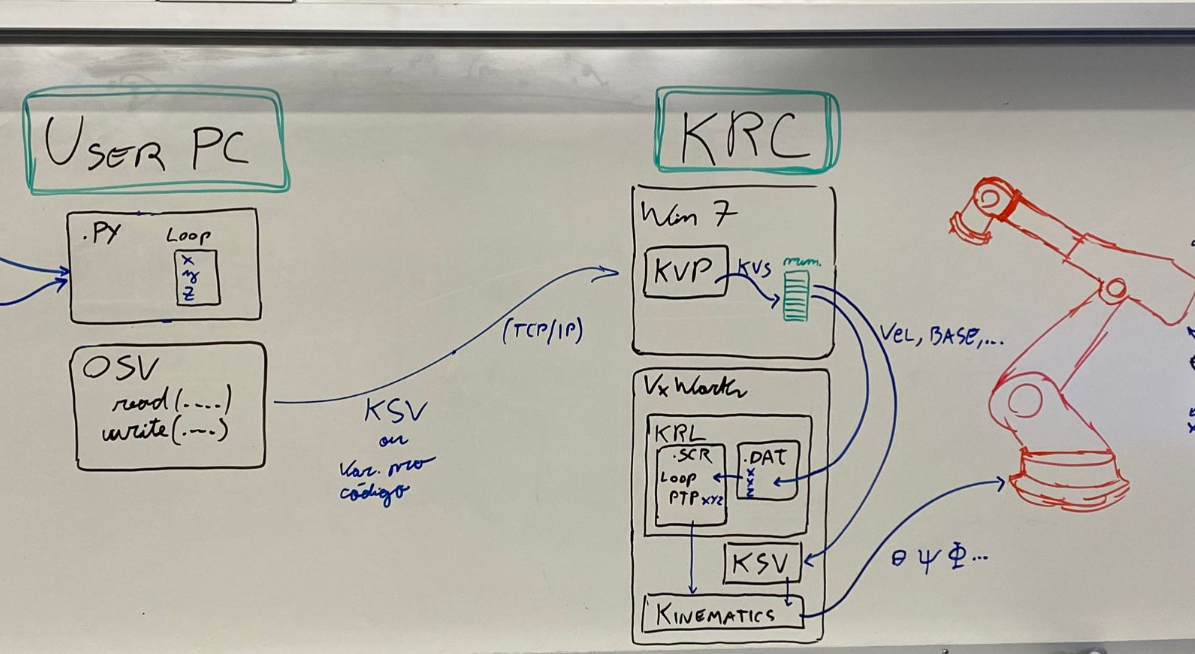 USER PC
.PY Loop
x
y
z
OSV
read(....)
write(....)
(TCP/IP)
KSV
ou
Var. no
código
KRC
Win 7
KVP
KVS
mem.
VEL, BASE,...
VxWork
KRL
.SCR
Loop
PTP XYZ
.DAT
X
Y
Z
KSV
KINEMATICS
θ ψ Φ...